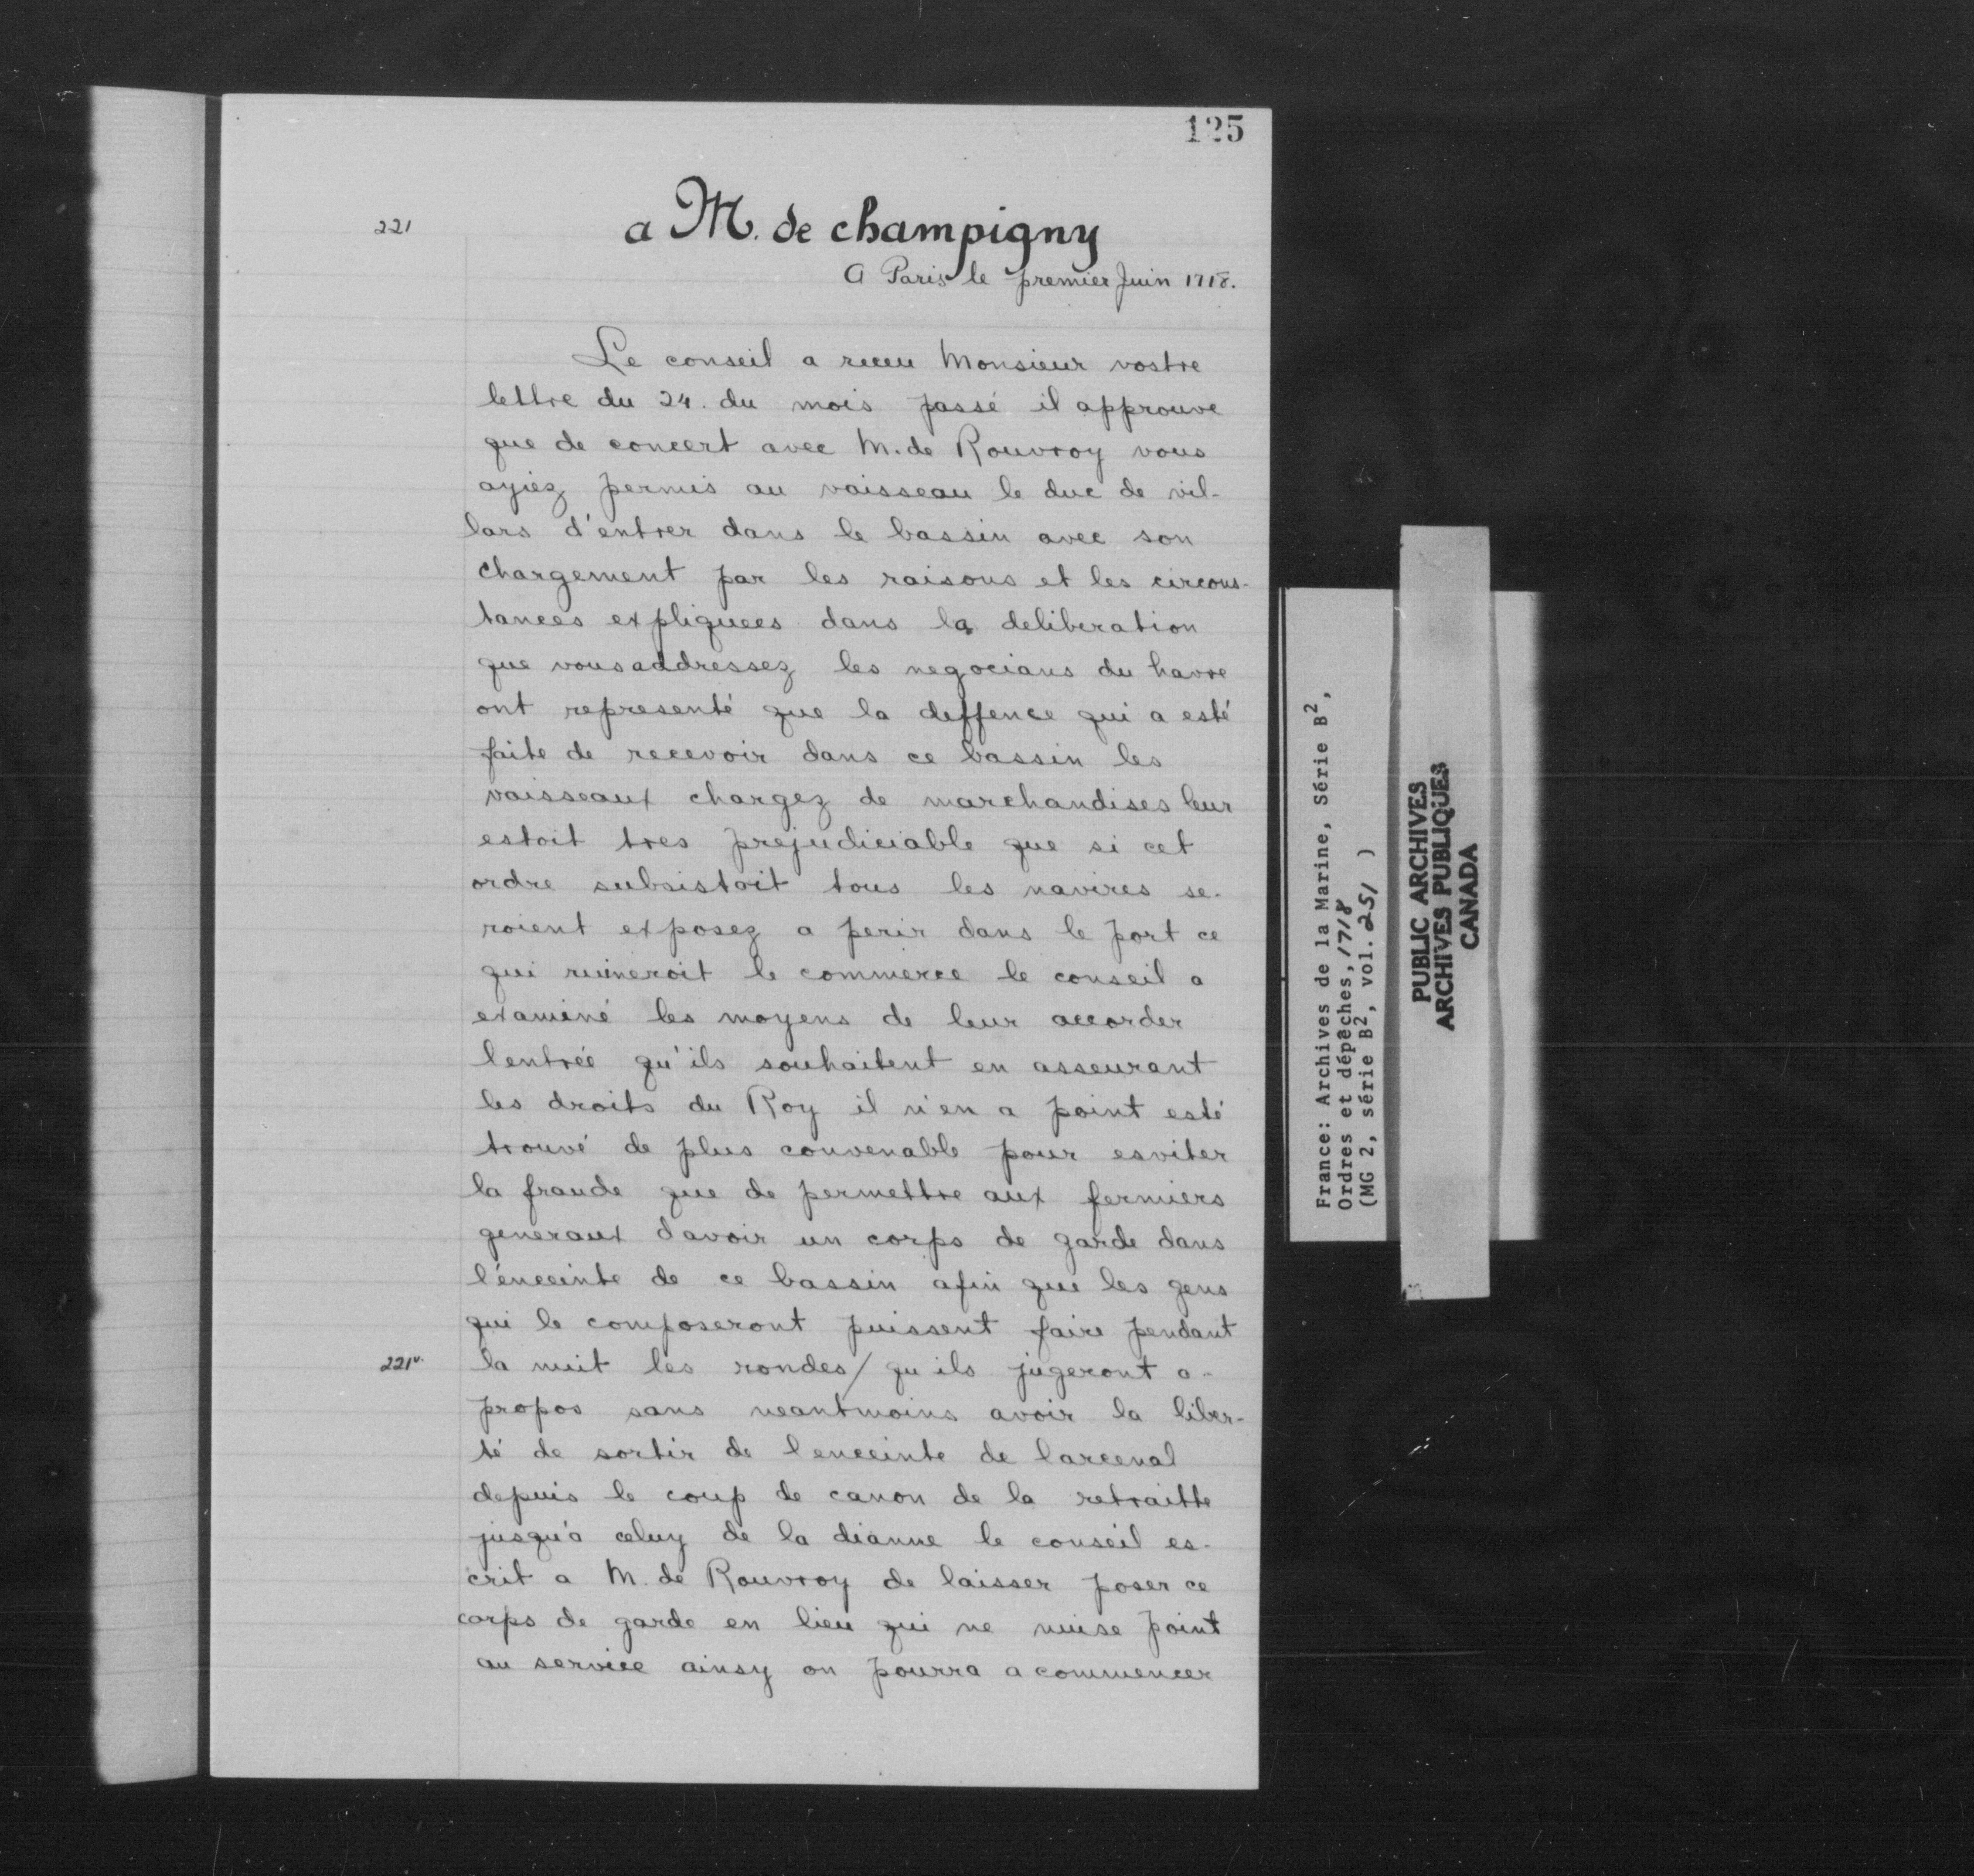 125
221
a M. de champigny
A Paris le premier Juin 1718.
Le conseil a receu Monsieur vostre
lettre du 24. du mois passé il approuve
que de concert avec M. de Rouvroy vous
ayiez permis au vaisseau le duc de vil-
lars d'entrer dans le bassin avec son
chargement par les raisons et les circons-
tances expliquees dans la deliberation
que vous addressez les negocians du havre
ont representé que la deffence qui a esté
faite de recevoir dans ce bassin les
vaisseaux chargez de marchandises leur
estoit tres prejudiciable que si cet
ordre subsistoit tous les navires se-
roient exposez a perir dans le port ce
qui ruineroit le commerce le conseil a
examiné les moyens de leur accorder
lentrée qu'ils souhaitent en asseurant
les droits du Roy il n'en a point esté
trouvé de plus convenable pour esviter
la fraude que de permettre aux fermiers
generaux davoir un corps de garde dans
l'enceinte de ce bassin afin que les gens
qui le composeront puissent faire pendant
221v.
la nuit les rondes/ qu ils jugeront a-
propos sans neantmoins avoir la liber-
té de sortir de lenceinte de larcenal
depuis le coup de canon de la retraitte
jusqu'a celuy de la dianne le conseil es-
crit a M. de Rouvroy de laisser poser ce
corps de garde en lieu qui ne nuise point
au service ainsy on pourra a commencer
France: Archives de la Marine, Série B2,
Ordres et dépêches, 1718
(MG 2, série B2, vol. 251 )
PUBLIC ARCHIVES
ARCHIVES PUBLIQUES
CANADA